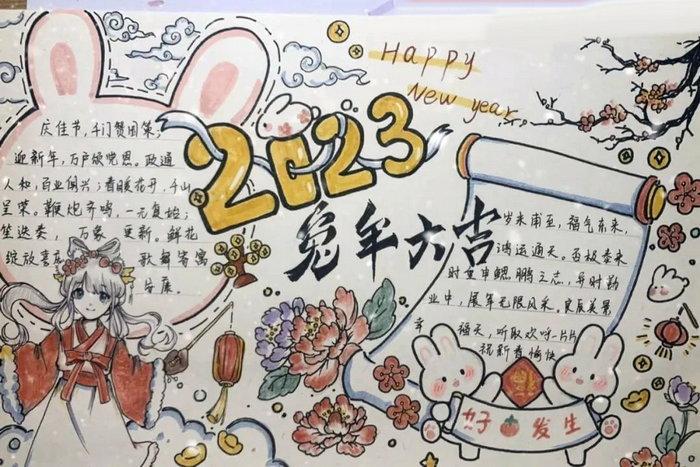 Happy
New year
2023
兔年大吉
庆佳节，千门赞国策；
迎新年，万户颂党恩。政通
人和，百业俱兴；春暖花开，千山
呈荣。鞭炮齐鸣，一元复始；
笙迭奏，万象更新。鲜花
绽放喜
歌舞寄寓
安康。
岁末甫至，福气东来，
鸿运通天。否极泰来
时宜申鲲鹏之志，异时勤
业中，展年无限风采。良辰美景
幸福天，听取欢呼一片片
祝新春愉快
福
好 发生